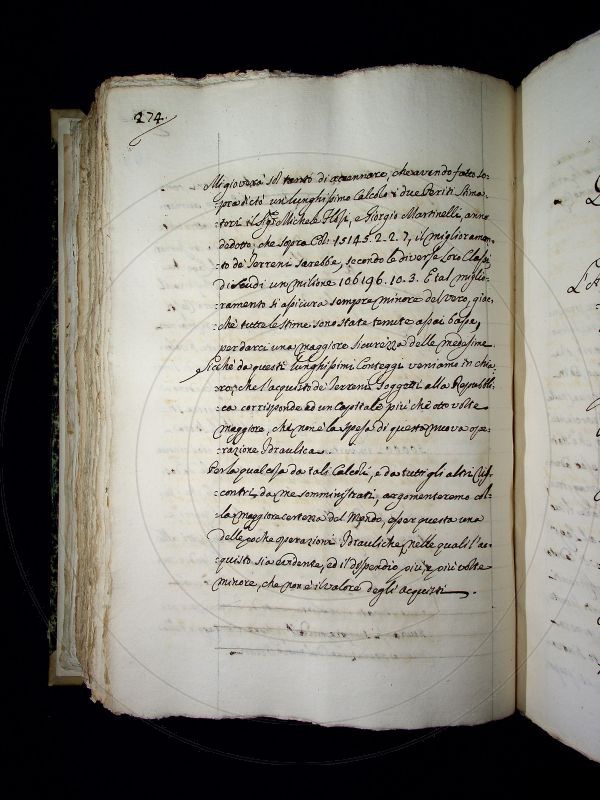 274.
Mi gioverà sol tanto di accennare, che avendo fatto so-
:pradicto un lunghissimo Calcolo i due Periti Stima-
:tori il Sigr Michele , e Giorgio Martinelli, anno
dedotto, che sopra Col: 15145. 2. 2. 7, il miglioramen-
:to de' Terreni sarebbe, secondo le diverse Loro Classi
di Scudi un milione 106196. 10. 3. E tal miglio-
:ramento si assicura sempre minore del vero, giac-
:chè tutte le stime sono state tenute assai basse,
per darci una maggiore sicurezza delle medesime.
Sicchè da questi lunghissimi Conteggi veniamo in chia-
:ro, che l'acquisto de' Terreni Soggetti alla Repubbli-
:ca corrisponde ad un Capitale più che otto volte
maggiore, che non è la spesa di questa nuova ope-
:razione Idraulica.
Per la qual cosa da tali Calcoli, e da tutti gli altri Ris-
:contri da me somministrati, argomenteremo col-
:la maggiore certezza del Mondo, esser questa una
delle poche operazioni Idrauliche, nelle quali l'ac-
:quisto sia evidente, ed il dispendio più, e più volte
minore, che non è il valore degli acquisti.